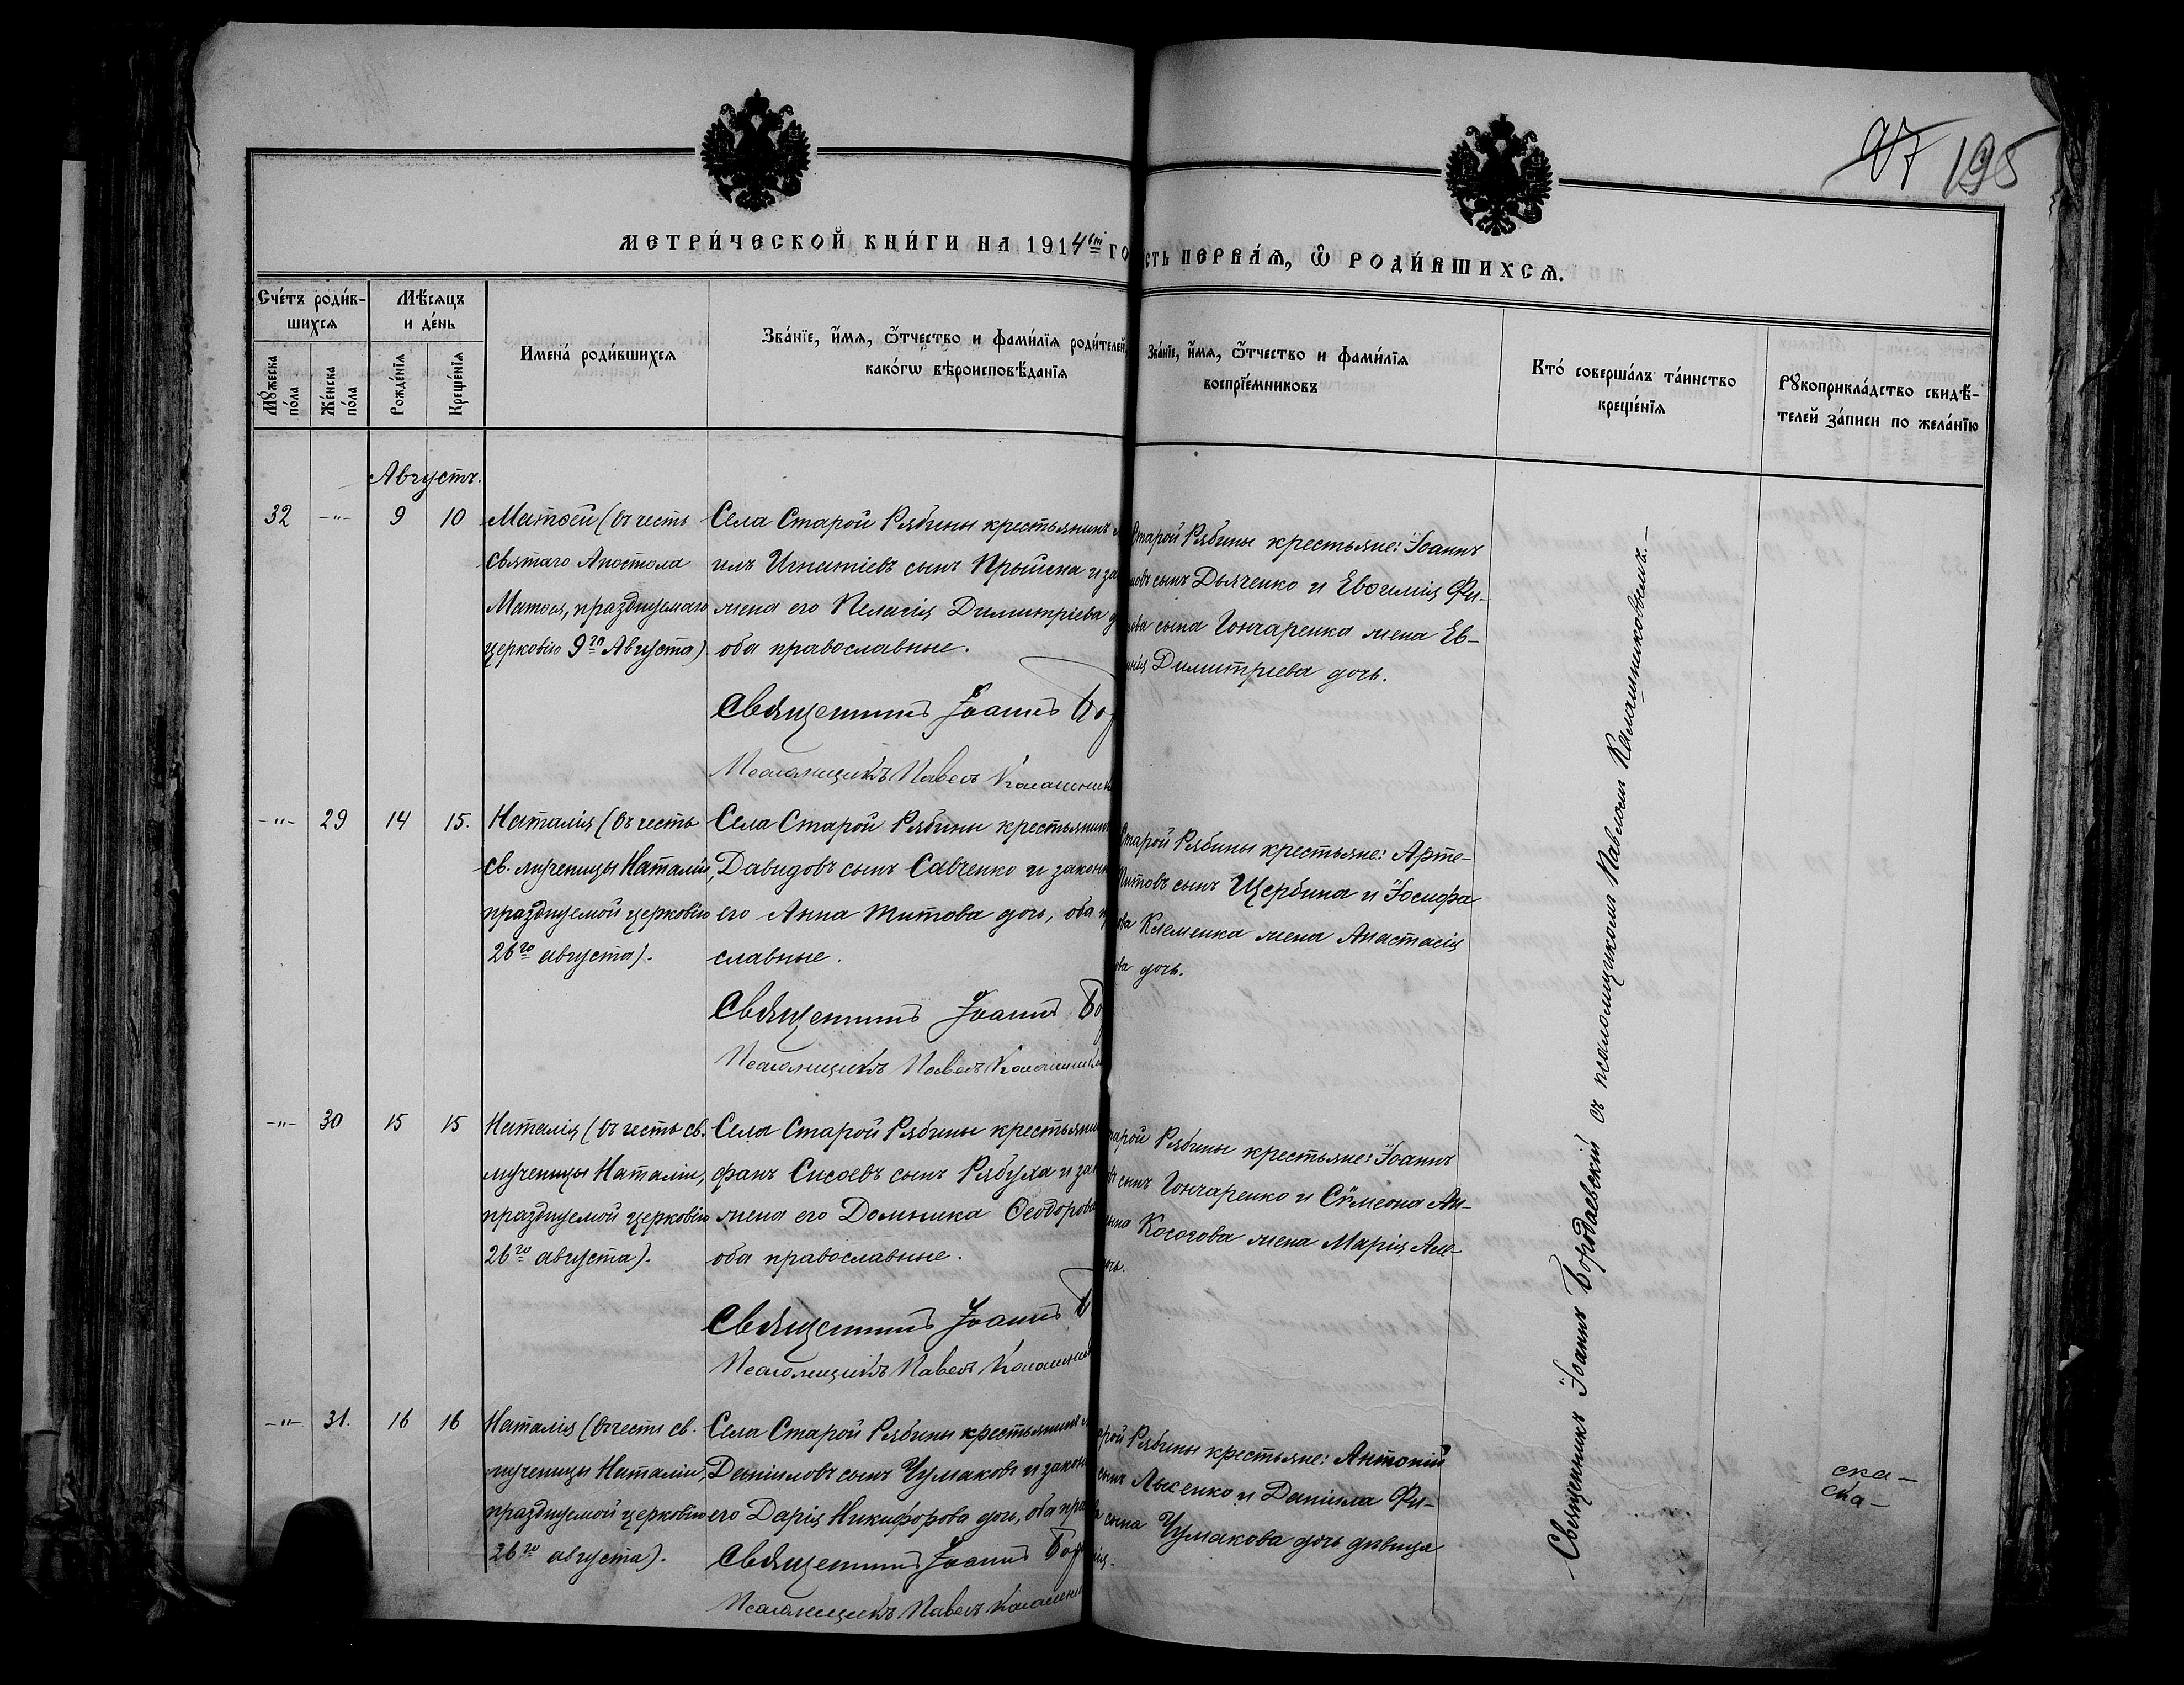 97 195
МЕТРИ́ЧЕСКОЙ КНИ́ГИ НА 1914ый ГО
СТЬ ПЕРВА́Я, Ѡ҆ РОДИ́ВШИХСЯ.
Сче́тъ роди́в-
шихся
Мꙋ́жеска по́ла
Же́нска по́ла
Мѣ́сяцъ
и де́нь
Рожде́нїя
Креще́нїя
Имена́ роди́вшихся
Зва́нїе, и҆́мя, ѻ҆́тчество и фами́лїя роди́телей,
како́гѡ вѣроисповѣ́данїя
Зва́нїе, и҆́мя, ѻ҆́тчество и фами́лїя
воспрїе́мниковъ
Кто́ соверша́лъ та́инство
креще́нїя
Рꙋкоприкла́дство свидѣ́-
телей за́писи по жела́нїю
Августъ.
32 -"- 9 10
Матѳей (въ честь
святаго Апостола
Матѳея, празднуемаго
церковію 9го Августа).
Села Старой Рябины крестьянинъ
илъ Игнатіевъ сынъ Прыйена и за
жена его Пелагія Димитріева
оба православные.
Священникъ Іоаннъ Бо
Псаломщикъ Павелъ Калашник
Старой Рябины крестьяне: Іоаннъ
овъ сынъ Дьяченко и Евѳимія Фи-
ова сына Гончаренка жена Ев-
Димитріева дочь.
-"- 29 14 15.
Наталія (въ честь
св. мученицы Наталіи,
празднуемой церковію
26го августа).
Села Старой Рябины крестьянинъ
Давидовъ сынъ Савченко и законн
его Анна Титова дочь, оба п
славные.
Священникъ Іоаннъ Бо
Псаломщикъ Павелъ Калашник
Старой Рябины крестьяне: Арте-
Титовъ сынъ Щербина и Іосифа
ова Клеменка жена Анастасія
ова дочь.
-"- 30 15 15
Наталія (въ честь св.
мученицы Наталіи,
празднуемой церковію
26го августа).
Села Старой Рябины крестьяни
фанъ Сисоевъ сынъ Рябуха и зак
жена его Домника Ѳеодорова
оба православные.
Священникъ Іоаннъ Б
Псаломщикъ Павелъ Калашник
арой Рябины крестьяне: Іоаннъ
въ сынъ Гончаренко и Сѵмеона Ан-
ына Косогова жена Марія Але-
очь.
-"- 31. 16 16
Наталія (въ честь св.
мученицы Наталіи,
празднуемой церковію
26го августа).
Села Старой Рябины крестьянинъ
Даніиловъ сынъ Чумаковъ и закон
его Дарія Никифорова дочь, оба пра
Священникъ Іоаннъ Бор
Псаломщикъ Павелъ Калашни
арой Рябины крестьяне: Антоній
сынъ Лысенко и Даніила Фи-
а сына Чумакова дочь дѣвица
ія.
Священникъ Іоаннъ Бородаевскій съ псаломщикомъ Павломъ Калашниковымъ.-
ска-
ска-